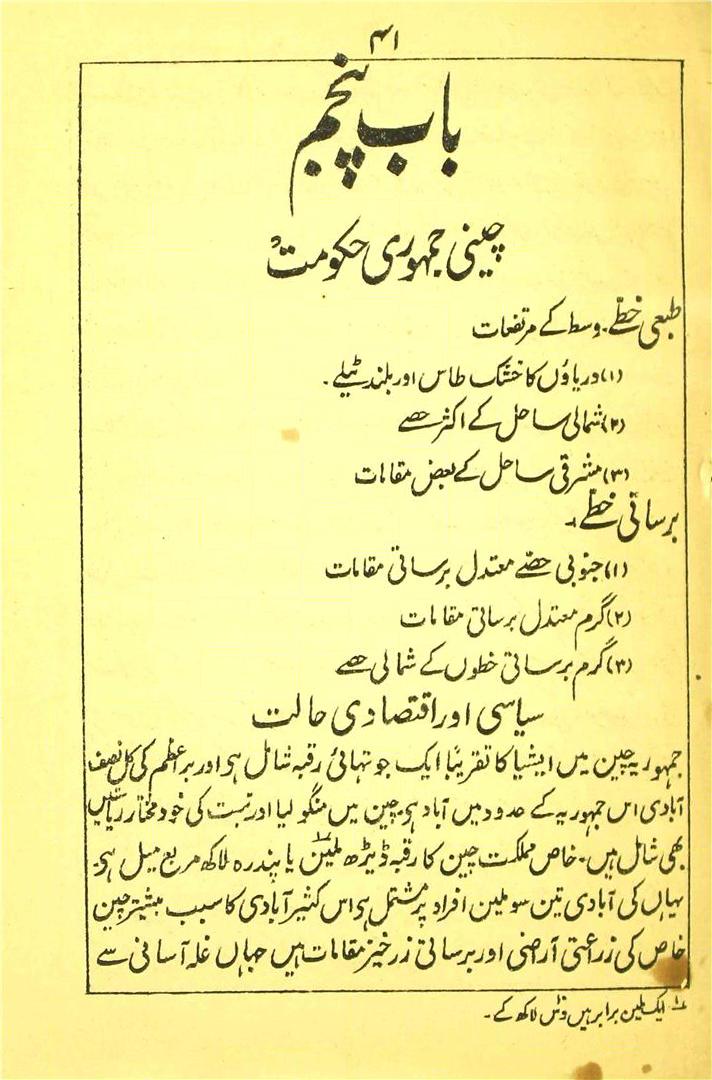 ۴۱
باب پنجم
چینی جمہوری حکومت
طبعی خطے۔ وسط کے مرتفعات
(۱) دریاؤں کا خشک طاس اور بلند ٹیلے۔
(۲) شمالی ساحل کے اکثر حصے
(۳) مشرقی ساحل کے بعض مقامات
برساتی خطے۔
(۱) جنوبی حصے معتدل برساتی مقامات
(۲) گرم معتدل برساتی مقامات
(۳) گرم برساتی خطوں کے شمالی حصے
سیاسی اور اقتصادی حالت
جمہوریہ چین میں ایشیا کا تقریبًا ایک چوتھائی رقبہ شامل ہو اور بر اعظم کی کل نصف
آبادی اس جمہوریہ کے حدود میں آباد ہو۔ چین میں منگولیا اور تبت کی خود مختار ریاستیں
بھی شامل ہیں۔ خاص مملکت چین کا رقبہ ڈیڑھ ملین۱؎ یا پندرہ لاکھ مربع میل ہو۔
یہاں کی آبادی تین سو ملین افراد پر مشتمل ہو اس کثیر آبادی کا سبب بیشتر چین
خاص کی زراعتی آراضی اور برساتی زرخیز مقامات ہیں جہاں غلہ آسانی سے
۱؎ ایک ملین برابر ہیں دس لاکھ کے۔